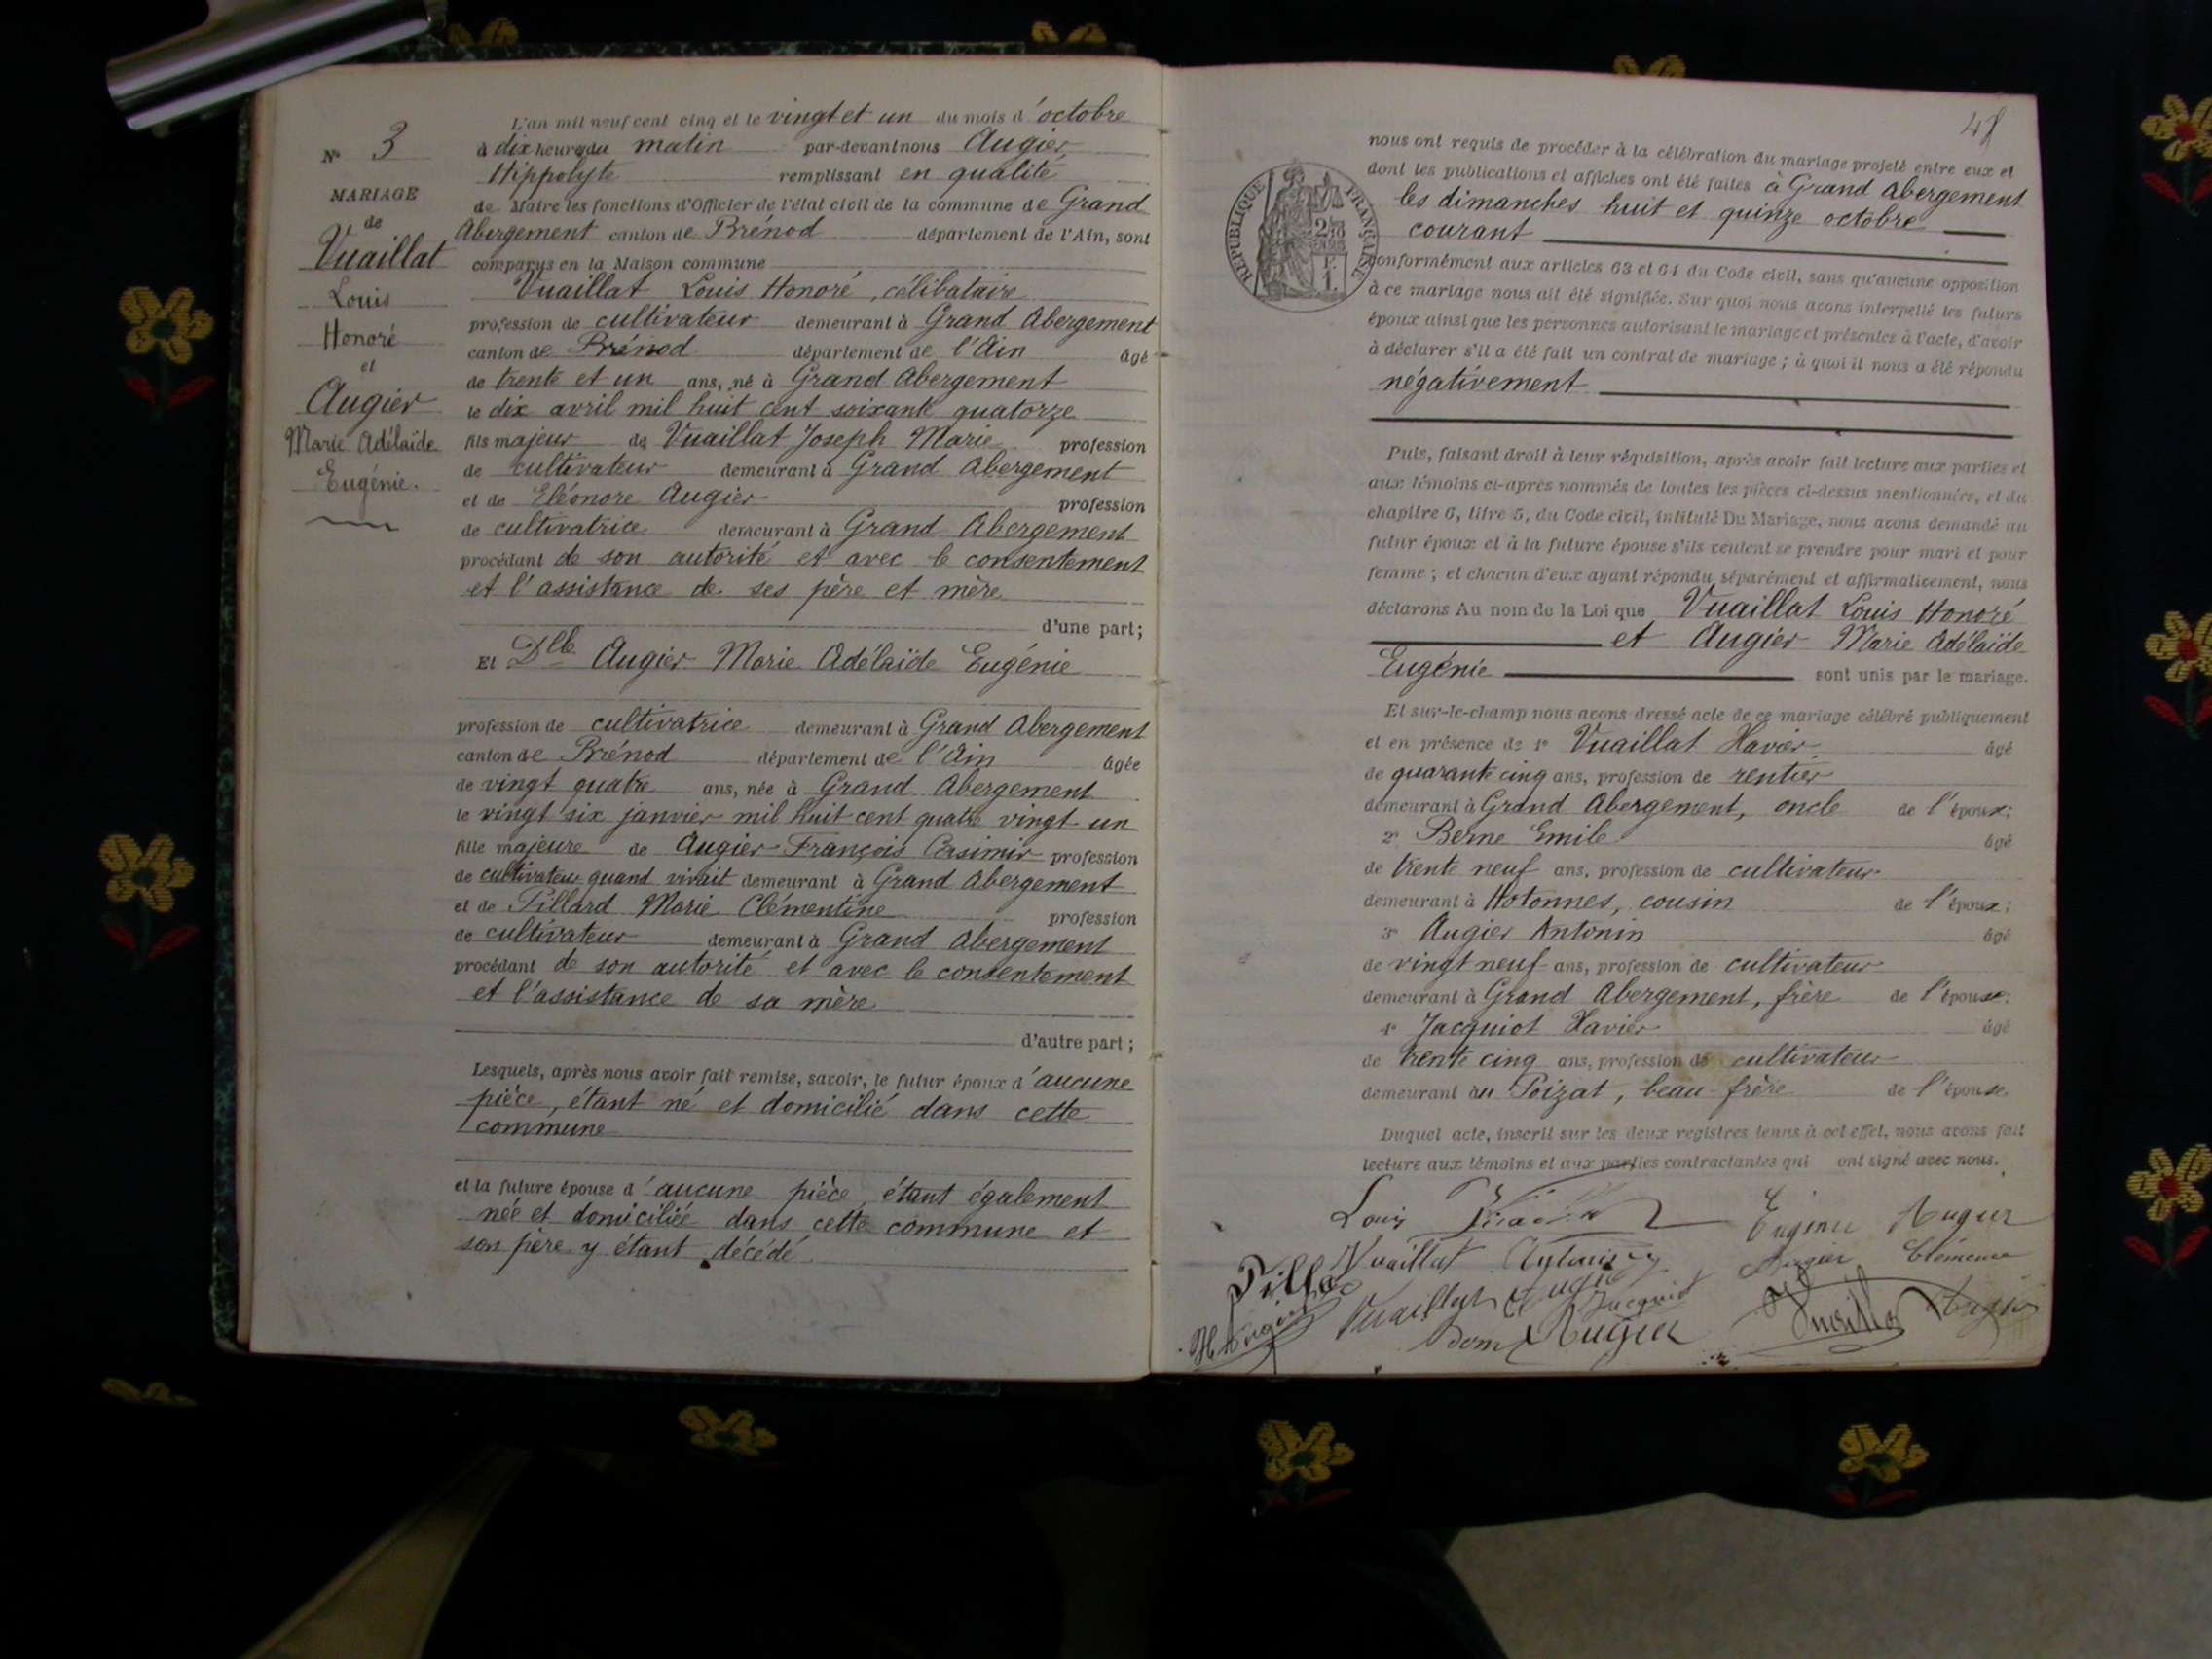 N° 3
MARIAGE
de
Vuaillat
Louis
Honoré
et
Augier
Marie Adélaïde
Eugénie.
L'an mil neuf cent cinq et le vingt et un du mois d'octobre
à dix heures du matin par-devant nous Augier
Hippolyte remplissant en qualité
de Maire les fonctions d'Officier de l'état civil de la commune de Grand
Abergement canton de Brénod département de l'Ain, sont
comparus en la Maison commune
Vuaillat Louis Honoré, célibataire
profession de cultivateur demeurant à Grand Abergement
canton de Brénod département de l'Ain âgé
de trente et un ans, né à Grand Abergement
le dix avril mil huit cent soixante quatorze
fils majeur de Vuaillat Joseph Marie profession
de cultivateur demeurant à Grand Abergement
et de Eléonore Augier profession
de cultivatrice demeurant à Grand Abergement
procédant de son autorité et avec le consentement
et l'assistance de ses père et mère
d'une part;
Et Dlle Augier Marie Adélaïde Eugénie
profession de cultivatrice demeurant à Grand Abergement
canton de Brénod département de l'Ain âgée
de vingt quatre ans, née à Grand Abergement
le vingt six janvier mil huit cent quatre vingt un
fille majeure de Augier François Casimir profession
de cultivateur quand vivait demeurant à Grand Abergement
et de Pillard Marie Clémentine profession
de cultivateur demeurant à Grand Abergement
procédant de son autorité et avec le consentement
et l'assistance de sa mère
d'autre part;
Lesquels, après nous avoir fait remise, savoir, le futur époux d'aucune
pièce, étant né et domicilié dans cette
commune
et la future épouse d'aucune pièce, étant également
née et domiciliée dans cette commune et
son père y étant décédé.
48
RÉPUBLIQUE FRANÇAISE
nous ont requis de procéder à la célébration du mariage projeté entre eux et
dont les publications et affiches ont été faites à Grand Abergement
les dimanches huit et quinze octobre
courant
conformément aux articles 63 et 64 du Code civil, sans qu'aucune opposition
à ce mariage nous ait été signifiée. Sur quoi nous avons interpellé les futurs
époux ainsi que les personnes autorisant le mariage et présentes à l'acte, d'avoir
à déclarer s'il a été fait un contrat de mariage; à quoi il nous a été répondu
négativement
Puis, faisant droit à leur réquisition, après avoir fait lecture aux parties et
aux témoins ci-après nommés de toutes les pièces ci-dessus mentionnées, et du
chapitre 6, titre 5, du Code civil, intitulé Du Mariage, nous avons demandé au
futur époux et à la future épouse s'ils veulent se prendre pour mari et pour
femme; et chacun d'eux ayant répondu séparément et affirmativement, nous
déclarons Au nom de la Loi que Vuaillat Louis Honoré
et Augier Marie Adélaïde
Eugénie sont unis par le mariage.
Et sur-le-champ nous avons dressé acte de ce mariage célébré publiquement
et en présence de 1° Vuaillat Xavier âgé
de quarante cinq ans, profession de rentier
demeurant à Grand Abergement, oncle de l'époux;
2° Berne Emile âgé
de trente neuf ans, profession de cultivateur
demeurant à Hotonnes, cousin de l'époux;
3° Augier Antonin âgé
de vingt neuf ans, profession de cultivateur
demeurant à Grand Abergement, frère de l'épouse;
4° Jacquiot Xavier âgé
de trente cinq ans, profession de cultivateur
demeurant au Poizat, beau-frère de l'épouse.
Duquel acte, inscrit sur les deux registres tenus à cet effet, nous avons fait
lecture aux témoins et aux parties contractantes qui ont signé avec nous.
Louis Eugénie Augier
Vuaillat Augier Clémence
Vuaillat Jacquiot
Augier